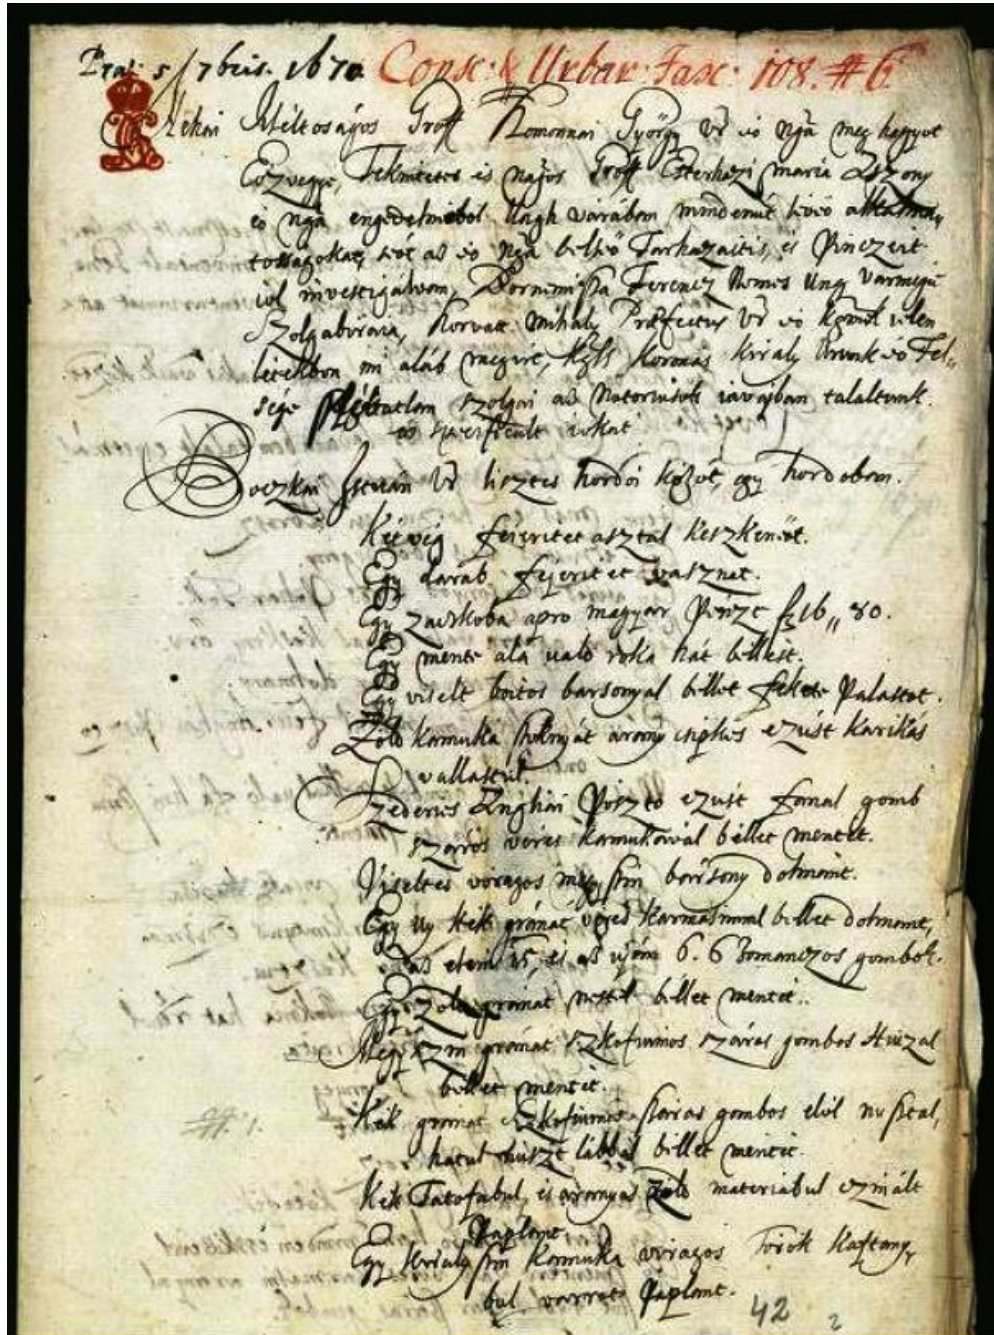 5 / 7bris. 1670. Consc: & Urbar: Fasc: 108. # 6.
Néhai Méltoságos Groff Homonnai György Ur eő nga meg hagyot
Eőzvegye, Tekintetes és nagos Groff Esterhazi maria Aszony
eő nga engedelmiböl Ungh várában mindenüt lévő
eő nga belső Tarhazaitis, és Pinczeit
iol investigalvan, Ferencz Nemes Ung Varmegie
Szolgabiraia, Horvat Mihály Præfectus Ur eő kgmek ielen
letekben mi aláb megirt, Kglis Koronas Kiraly Urunk eő Fel-
sége szolgai az iavajban talaltunk.
es specificalt iokat
Boczkai Istvan Ur lisztes hordoi között, egy hordoban.
Két vég fejéritet asztal keszkenőt.
Egy daráb fejéritet vasznat.
Egy zacskoba apro magyar Penzt f. 16 „ 80.
Egy mente alá valo roka hát béllést.
Egy viselt boitos barsonyal béllet fekete Palastot.
Zöld kamuka szoknyát arany csipkés ezüst karikás
vallastúl.
Zederies Angliai Poszto ezüst fonal gomb
szárós veres kamukával béllet mentét.
Viseltes viragos megy szin bársony dolmánt.
Egy uy kék gránát veres karmasinnal béllet dolmant,
az elein 15, és az ujján 6. 6 zomanczos gombok.
Egy Zöld gránát nesttel béllet mentét.
Megy szin gránát szkofiumos száras gombos Hiuzal
béllet mentét.
Kék granat szkofiumos száras gombos elöl nusztal,
hatul hiuz lábbal béllet mentét.
Kék Tafotabul, és aranyas Zöld materiabul czinált
Paplant.
Egy király szin kamuka viragos Török Kaftany-
bul varrot Paplant.
42
2
# 1.